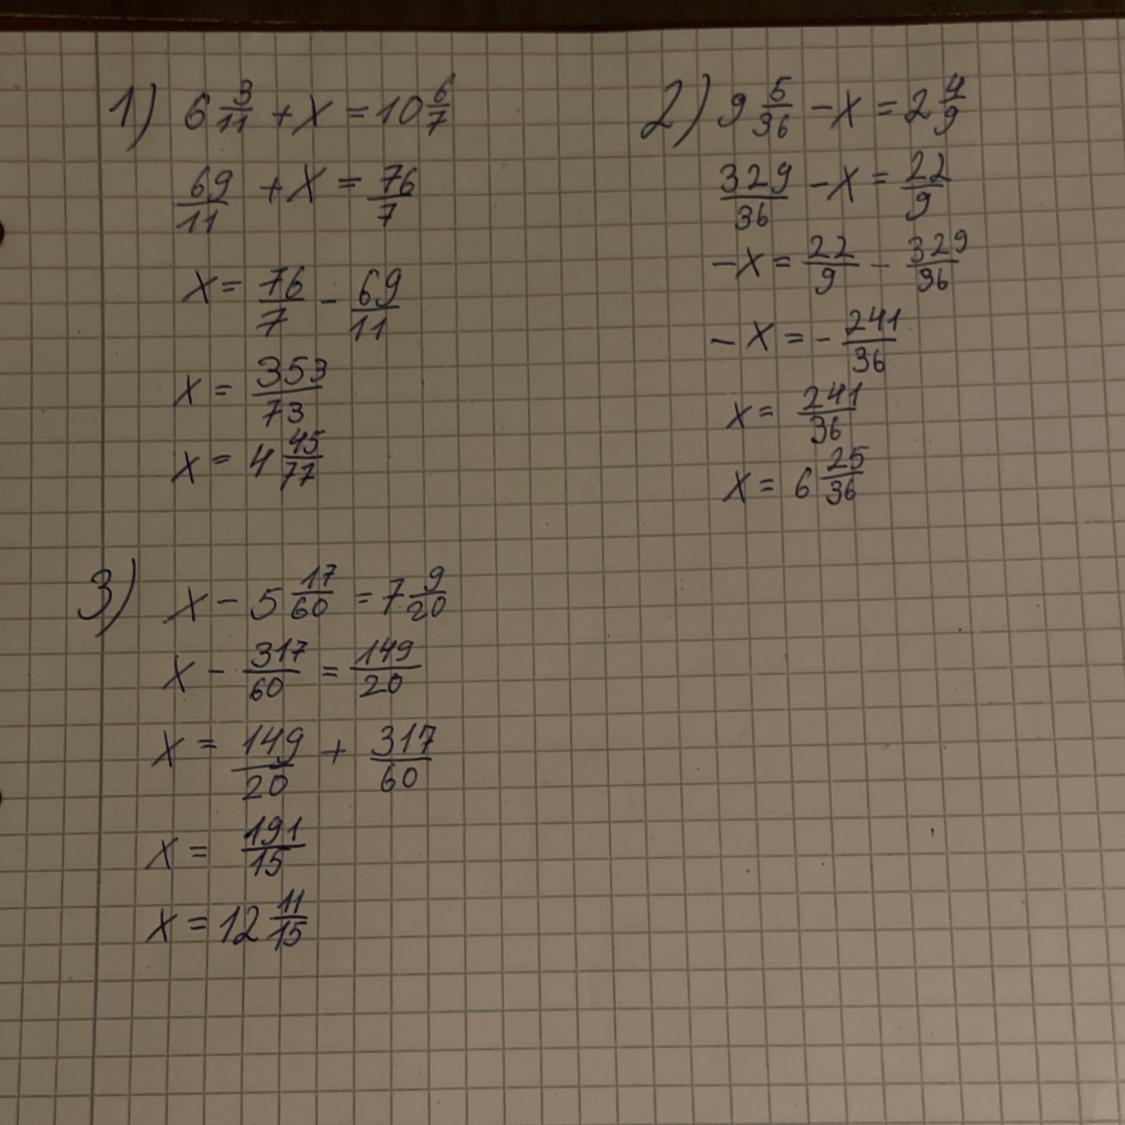 1) 6 3/11 + x = 10 6/7
69/11 + x = 76/7
x = 76/7 - 69/11
x = 353/73
x = 4 45/77
2) 9 5/36 - x = 2 4/9
329/36 - x = 22/9
-x = 22/9 - 329/36
-x = - 241/36
x = 241/36
x = 6 25/36
3) x - 5 17/60 = 7 9/20
x - 317/60 = 149/20
x = 149/20 + 317/60
x = 191/15
x = 12 11/15